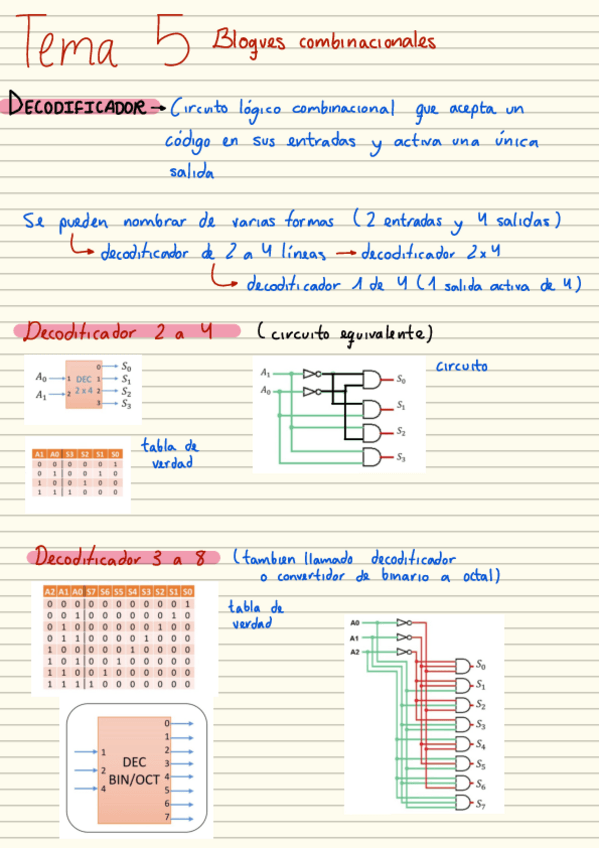 Tema 5 Bloques combinacionales
DECODIFICADOR → Circuito lógico combinacional que acepta un
código en sus entradas y activa una única
salida
Se pueden nombrar de varias formas (2 entradas y 4 salidas)
decodificador de 2 a 4 líneas → decodificador 2x4
decodificador 1 de 4 (1 salida activa de 4)
Decodificador 2 a 4 (circuito equivalente)
circuito
A₀ 1 DEC 2x4 0 S₀
A₁ 2 1 S₁
2 S₂
3 S₃
A₁ S₀
A₀ S₁
S₂
S₃
tabla de
verdad
A1 A0 S3 S2 S1 S0
0 0 0 0 0 1
0 1 0 0 1 0
1 0 0 1 0 0
1 1 1 0 0 0
Decodificador 3 a 8 (tambien llamado decodificador
o convertidor de binario a octal)
A2 A1 A0 S7 S6 S5 S4 S3 S2 S1 S0
0 0 0 0 0 0 0 0 0 0 1
0 0 1 0 0 0 0 0 0 1 0
0 1 0 0 0 0 0 0 1 0 0
0 1 1 0 0 0 0 1 0 0 0
1 0 0 0 0 0 1 0 0 0 0
1 0 1 0 0 1 0 0 0 0 0
1 1 0 0 1 0 0 0 0 0 0
1 1 1 1 0 0 0 0 0 0 0
tabla de
verdad
A0
A1
A2
S₀
S₁
S₂
S₃
S₄
S₅
S₆
S₇
DEC
BIN/OCT
1
2
4
0
1
2
3
4
5
6
7